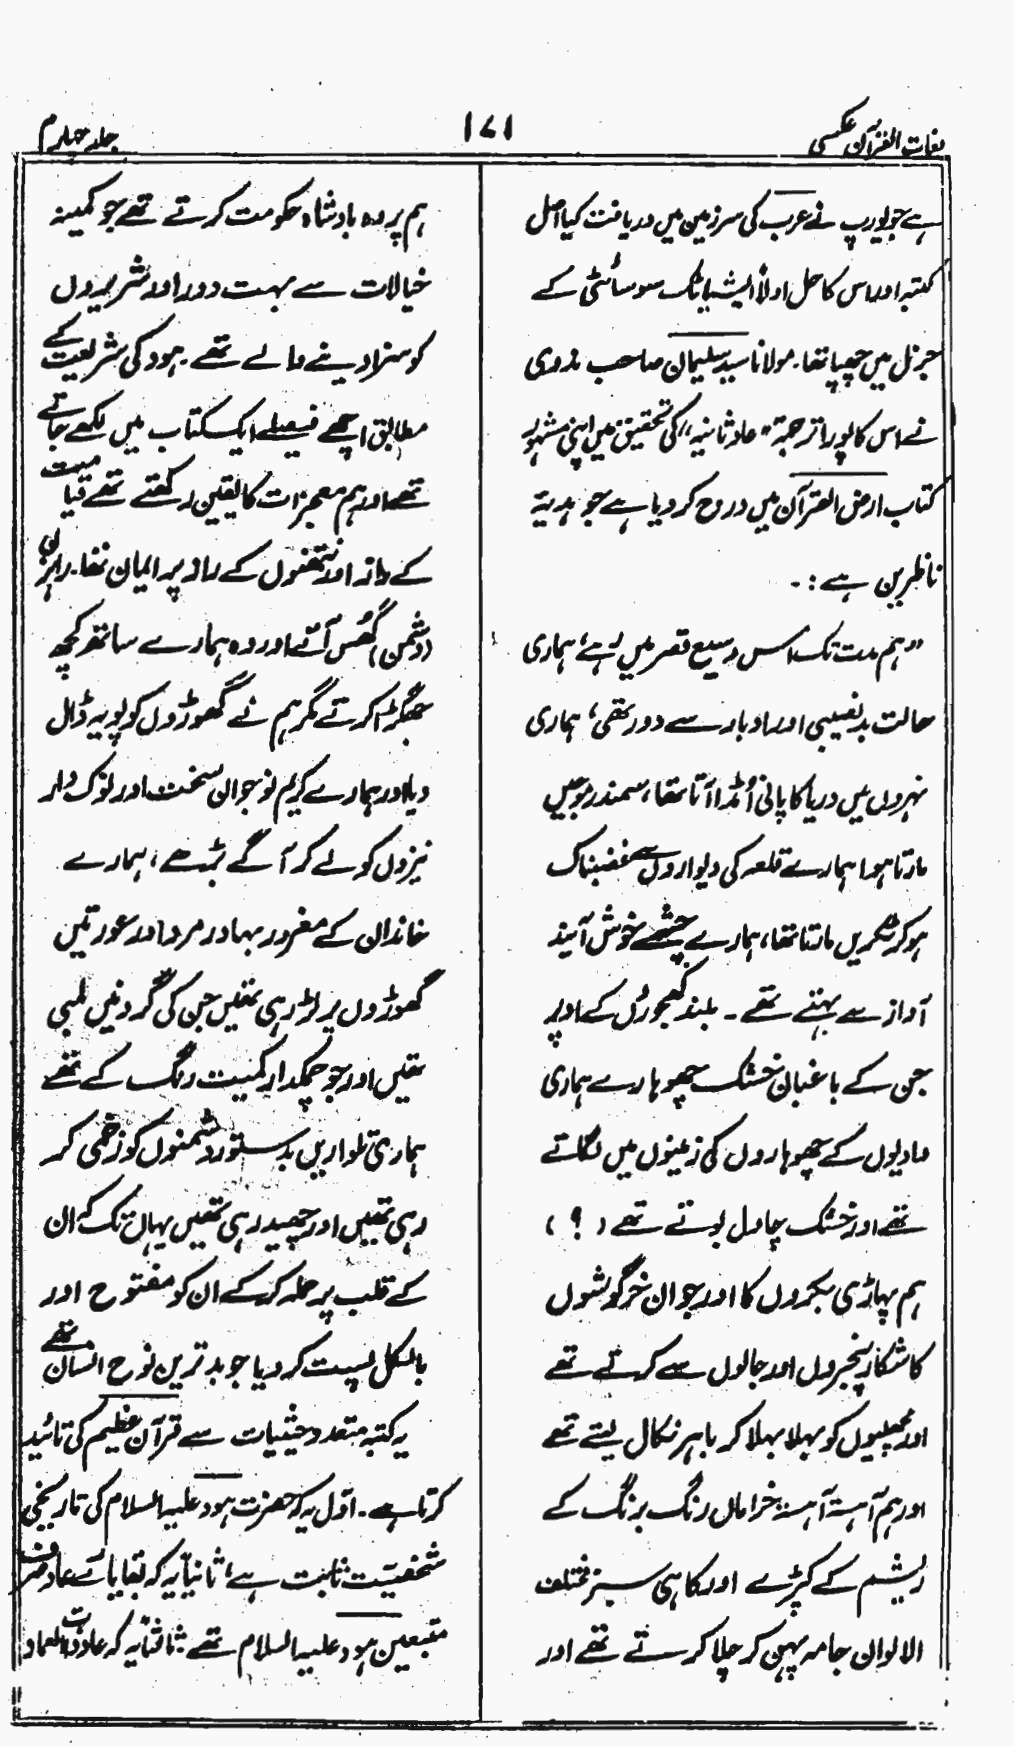 لغات القرآن عکسی
۱۷۱
جلد چہارم
ہے جو یورپ نے عرب کی سرزمین میں دریافت کیا اصل
کتبہ اور اس کا حل اولاً ایشیاٹک سوسائٹی کے
جرنل میں چھپا تھا۔ مولانا سید سلیمان صاحب ندوی
نے اس کا پورا ترجمہ "عاد ثانیہ" کی تحقیق میں اپنی مشہور
کتاب ارض القرآن میں درج کر دیا ہے جو ہدیۂ
ناظرین ہے :۔
"ہم مدت تک اس وسیع قصر میں رہے، ہماری
حالت بدنصیبی اور ادبار سے دور تھی، ہماری
نہروں میں دریا کا پانی اُمڈا آتا تھا، سمندر موجیں
مارتا ہوا ہمارے قلعہ کی دیواروں سے غضبناک
ہو کر ٹکریں مارتا تھا، ہمارے چشمے خوش آیند
آواز سے بہتے تھے ۔ بلند کھجوروں کے اوپر
جن کے باغبان خشک چھوہارے ہماری
وادیوں کے چھوہاروں کی زمینوں میں لگاتے
تھے اور خشک چاول بوتے تھے (؟)
ہم پہاڑی بکروں کا اور جوان خرگوشوں
کا شکار پنجروں اور جالوں سے کرتے تھے
اور مچھلیوں کو بہلا بہلا کر باہر نکال لیتے تھے
اور ہم آہستہ آہستہ خراماں رنگ برنگ کے
ریشم کے کپڑے اور کاہی سبز مختلف
الالوان جامہ پہن کر چلا کرتے تھے اور
ہم پر وہ بادشاہ حکومت کرتے تھے جو کمینہ
خیالات سے بہت دور اور شریروں
کو سزا دینے والے تھے ۔ ہود کی شریعت کے
مطابق اچھے فیصلے ایک کتاب میں لکھے جاتے
تھے اور ہم معجزات کا یقین رکھتے تھے قیامت
کے راز اور نتھنوں کے راز پر ایمان تھا۔ راہزن
(دشمن) گھس آئے اور وہ ہمارے ساتھ کچھ
جھگڑا کرتے مگر ہم نے گھوڑوں کو پویہ ڈال
دیا اور ہمارے کریم نوجوان سخت اور نوک دار
نیزوں کو لے کر آگے بڑھے، ہمارے
خاندان کے مغرور بہادر مرد اور عورتیں
گھوڑوں پر لڑ رہی تھیں جن کی گردنیں لمبی
تھیں اور جو چمکدار کمیت رنگ کے تھے
ہماری تلواریں بدستور دشمنوں کو زخمی کر
رہی تھیں اور چھید رہی تھیں یہاں تک کہ ان
کے قلب پر حملہ کر کے ان کو مفتوح اور
بالکل پست کر دیا جو بدترین نوح انسان تھے
یہ کتبہ متعدد حیثیات سے قرآن عظیم کی تائید
کرتا ہے ۔ اوّل یہ کہ حضرت ہود علیہ السلام کی تاریخی
شخصیت ثابت ہے، ثانیاً یہ کہ بقایائے عاد صرف
متبعین ہود علیہ السلام تھے، ثالثاً یہ کہ عاد ذات العماد